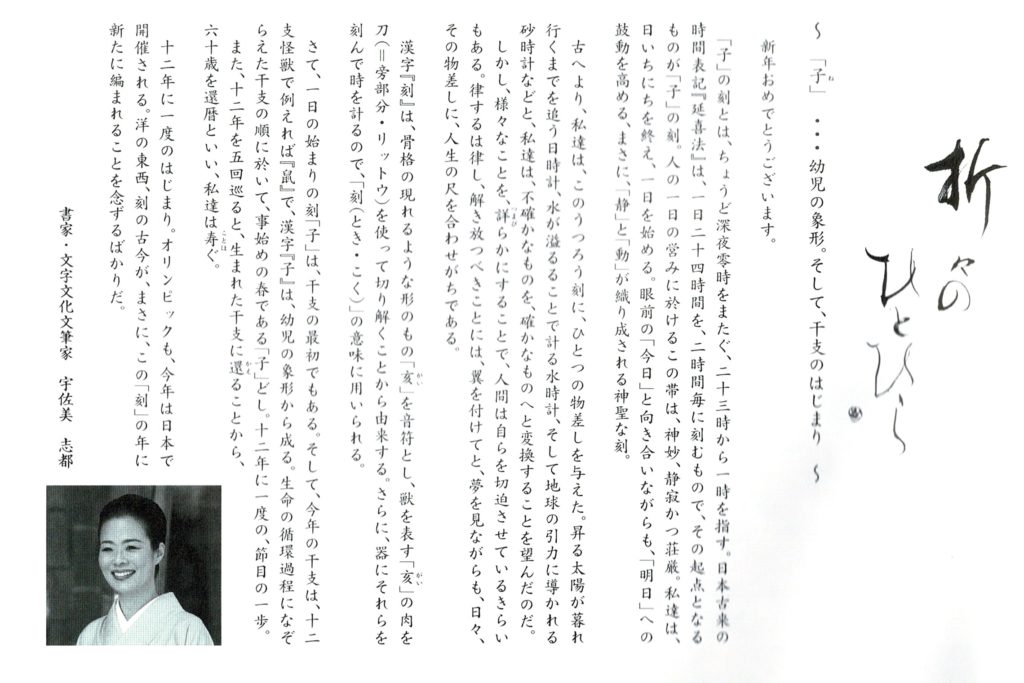 折々の
ひとひら
～ 「子」 ・・・幼児の象形。そして、干支のはじまり ～
ね
新年おめでとうございます。
「子」の刻とは、ちょうど深夜零時をまたぐ、二十三時から一時を指す。日本古来の
時間表記『延喜法』は、一日二十四時間を、二時間毎に刻むもので、その起点となる
ものが「子」の刻。人の一日の営みに於けるこの帯は、神妙、静寂かつ荘厳。私達は、
日いちにちを終え、一日を始める。眼前の「今日」と向き合いながらも、「明日」への
鼓動を高める、まさに、「静」と「動」が織り成される神聖な刻。
古へより、私達は、このうつろう刻に、ひとつの物差しを与えた。昇る太陽が暮れ
行くまでを追う日時計、水が溢るることで計る水時計、そして地球の引力に導かれる
砂時計などと、私達は、不確かなものを、確かなものへと変換することを望んだのだ。
しかし、様々なことを、詳らかにすることで、人間は自らを切迫させているきらい
もある。律するは律し、解き放つべきことには、翼を付けてと、夢を見ながらも、日々、
その物差しに、人生の尺を合わせがちである。
漢字『刻』は、骨格の現れるような形のもの「亥」を音符とし、獣を表す「亥」の肉を
がい
がい
刀（＝旁部分・リットウ）を使って切り解くことから由来する。さらに、器にそれらを
刻んで時を計るので、「刻（とき・こく）」の意味に用いられる。
さて、一日の始まりの刻「子」は、干支の最初でもある。そして、今年の干支は、十二
支怪獣で例えれば『鼠』で、漢字『子』は、幼児の象形から成る。生命の循環過程になぞ
らえた干支の順に於いて、事始めの春である「子」どし。十二年に一度の、節目の一歩。
また、十二年を五回巡ると、生まれた干支に還ることから、
かえ
六十歳を還暦といい、私達は寿ぐ。
ことほ
十二年に一度のはじまり。オリンピックも、今年は日本で
開催される。洋の東西、刻の古今が、まさに、この「刻」の年に
新たに編まれることを念ずるばかりだ。
書家・文字文化文筆家 宇佐美 志都